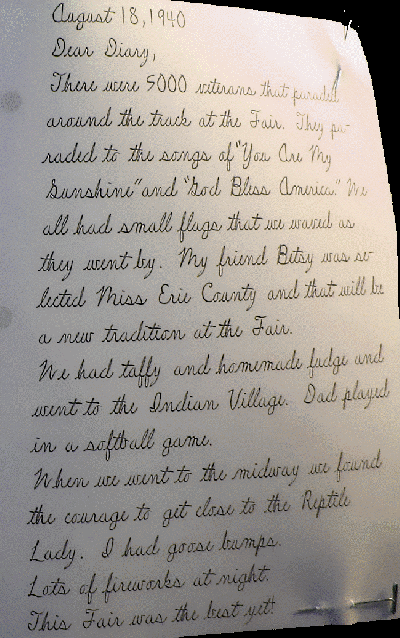 August 18, 1940
Dear Diary,
There were 5000 veterans that paraded
around the track at the Fair. They pa-
raded to the songs of "You Are My
Sunshine" and "God Bless America." We
all had small flags that we waved as
they went by. My friend Betsy was se-
lected Miss Erie County and that will be
a new tradition at the Fair.
We had taffy and homemade fudge and
went to the Indian Village. Dad played
in a softball game.
When we went to the midway we found
the courage to get close to the Reptile
Lady. I had goose bumps.
Lots of fireworks at night.
This Fair was the best yet!